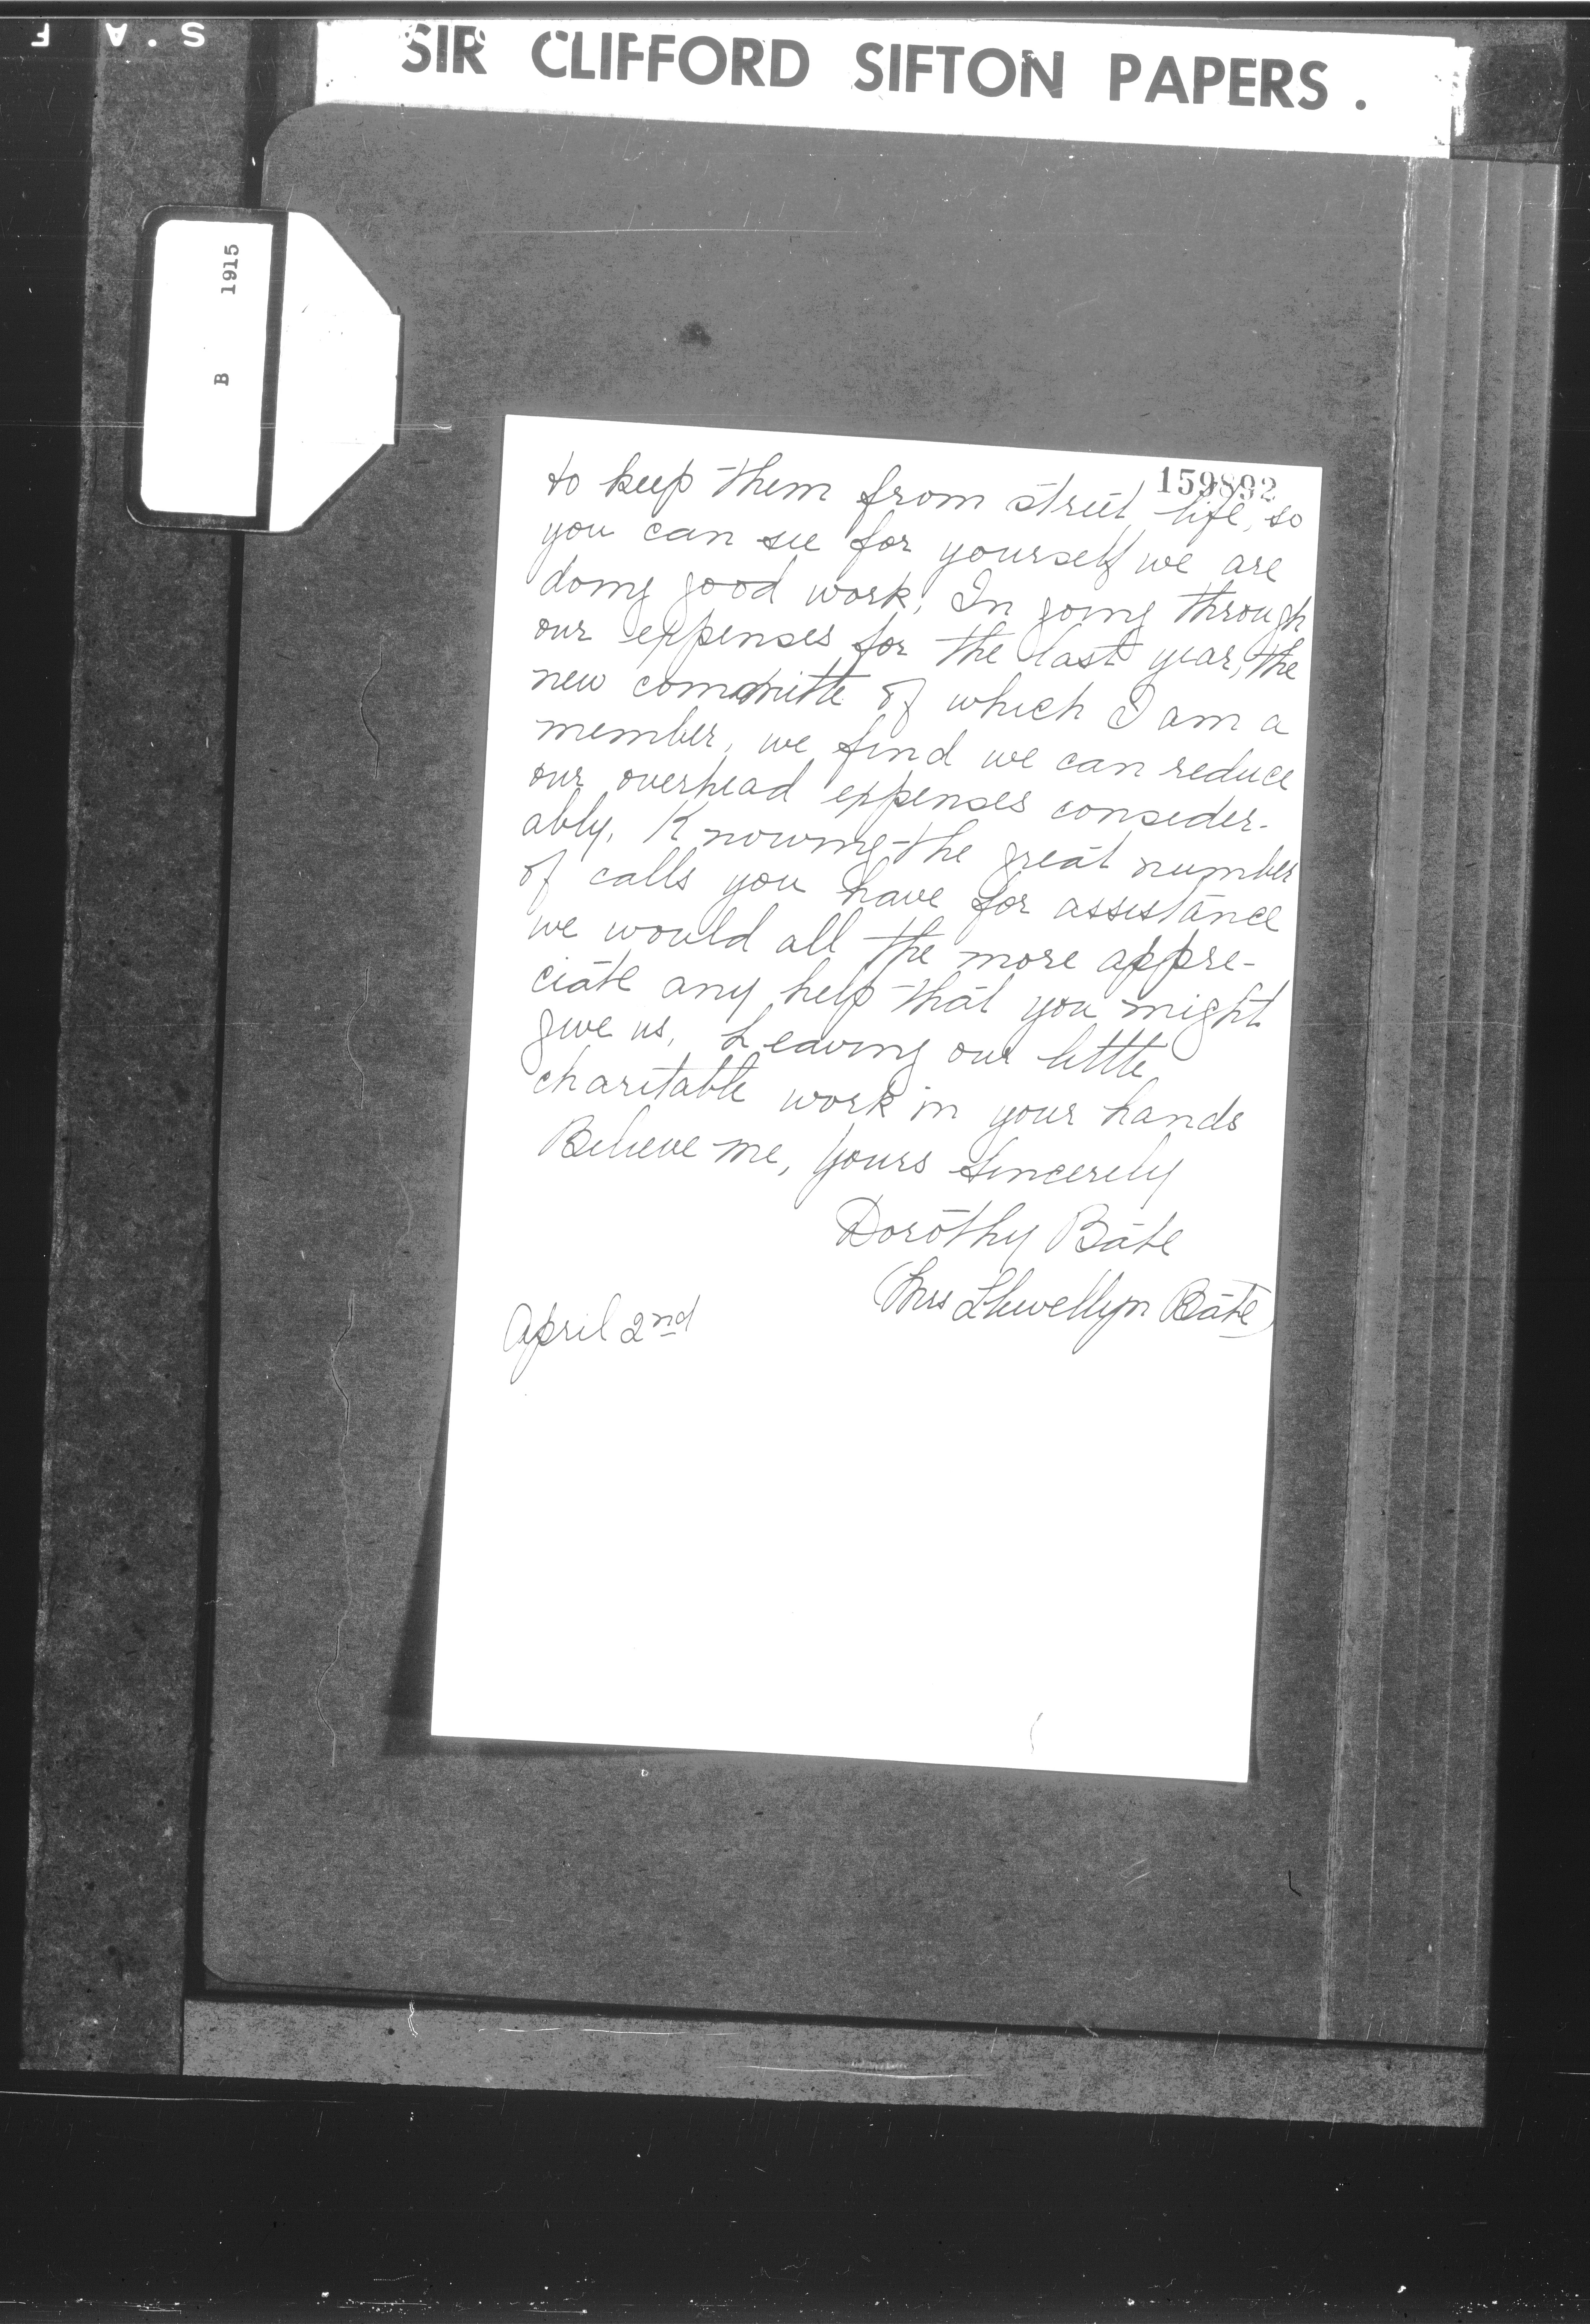 S.A F
SIR CLIFFORD SIFTON PAPERS.
B 1915
159892
to keep them from street life, so
you can see for yourself we are
doing good work. In going through
our expenses for the last year, the
new committe of which I am a
member, we find we can reduce
our overhead expenses consider-
ably. Knowing the great number
of calls you have for assistance
we would all the more appre-
ciate any help that you might
give us. Leaving our little
charitable work in your hands
Believe me, yours sincerely
Dorothy Bate
(Mrs Llewellyn Bate)
April 2nd